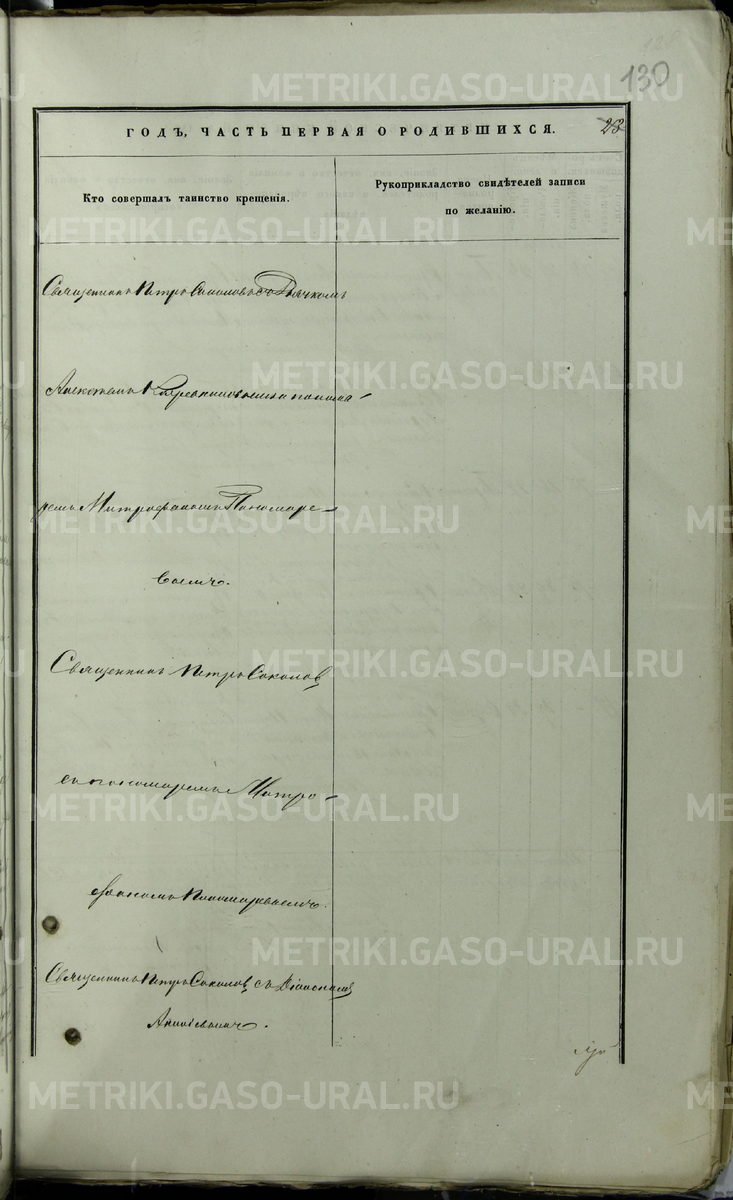 130
ГОДЪ, ЧАСТЬ ПЕРВАЯ О РОДИВШИХСЯ. 28
Кто совершалъ таинство крещенія.
Рукоприкладство свидѣтелей записи
по желанію.
Священникъ Петръ Соколовъ съ Дьячкомъ
и понома-
ремъ Митрофаномъ Пономаре-
вымъ.
Священникъ Петръ Соколов
съ пономаремъ Митро-
фаномъ Пономаревымъ.
Священникъ Петръ Соколов съ Діакономъ
METRIKI.GASO-URAL.RU